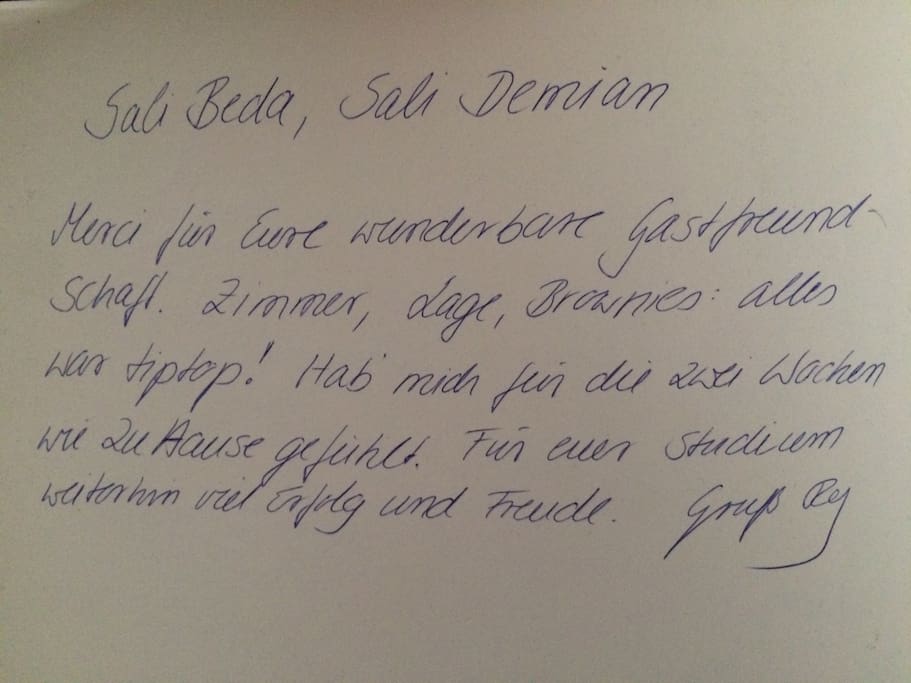 Sali Beda, Sali Demian
Merci für Eure wunderbare Gastfreund-
schaft. Zimmer, Lage, Brownies: alles
war tiptop! Hab' mich für die zwei Wochen
wie zu Hause gefühlt. Für euer Studium
weiterhin viel Erfolg und Freude. Gruß